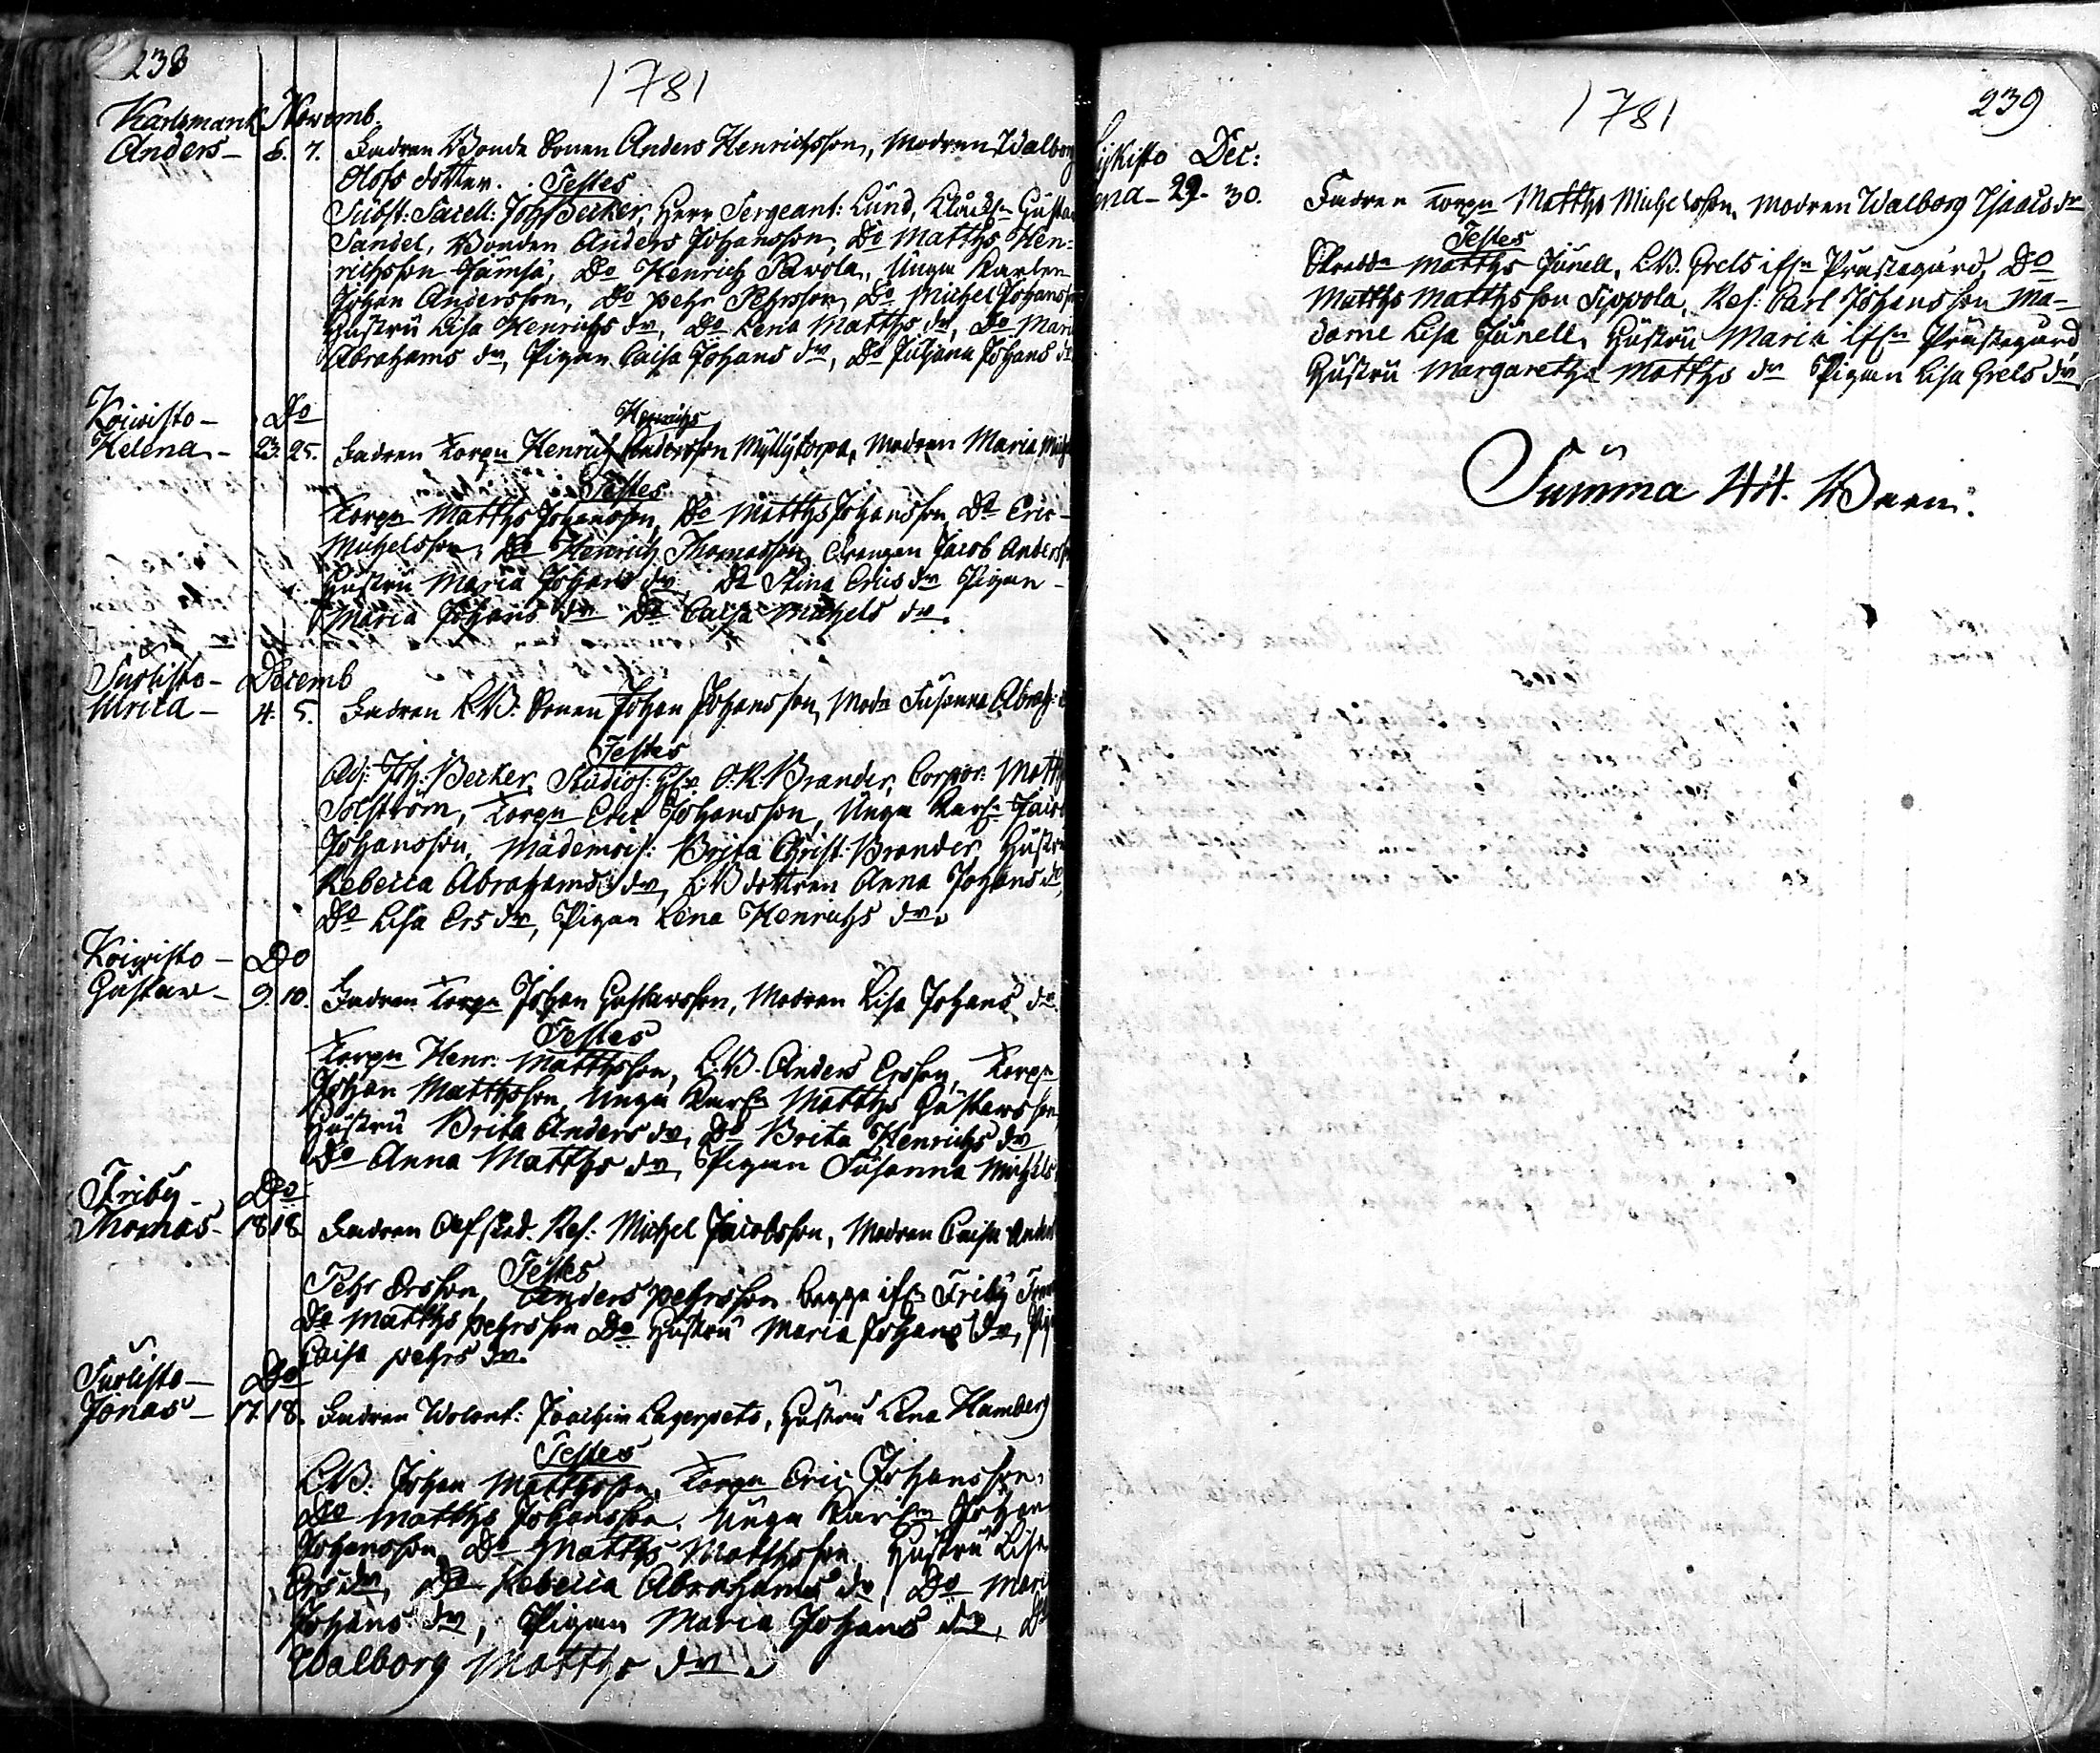 238
1781
Karlsmark Novemb.
Anders – 6. 7. Fadren Bonde Sonen Anders Henrichsson, Modren Walborg
Olofs dotter. Testes
Subst: Sacell: Joh: Becker, Herr Sergeant: Lund, Klock:n Gustav
Sandel, Bonden Anders Johansson, Do Matths Hen-
richsson Jämsä, Do Henrich Pavola, Unga Karlen
Johan Andersson, Do Pehr Pehrsson, Do Michel Johansson
Hustru Lisa Henrichs dr, Do Lena Matths dr, Do Maria
Abrahams dr, Pigan Caisa Johans dr, Do Juliana Johans dr
Koivisto – Do Henrichs
Helena – 23. 25. Fadren Torpn Henrich Andersson Myllytorpa, Modren Maria Mich
Testes
Torpn Matths Johansson, Do Matths Johansson, Do Eric
Michelsson, Do Henrich Thomasson, Drengen Jacob Anderss
Hustru Maria Johans dr, Do Stina Erics dr Pigan
Maria Johans dr Do Caisa Michels dr.
Suolisto – Decemb
Ulrica – 4. 5. Fadren LB: Sonen Johan Johansson, Modn Susanna Abrah:
Testes
Adj: Joh: Becker, Studios: H:r O. R: Brander, Corpor: Matth
Solström, Torpn Eric Johansson, Unga Karln Jacob
Johansson, Mademois: Brita Christ: Brander Hustru
Rebecca Abrahams dr, LB dottren Anna Johans dr,
Do Lisa Ers dr, Pigan Lena Henrichs dr.
Koivisto – Do
Gustaw – 9. 10. Fadren Torpn Johan Gustawsson, Modren Lisa Johans dr.
Testes
Torpn Henr: Matthsson, LB. Anders Ersson, Torpn
Johan Matthsson, Unga Karln Matths Gustawsson,
Hustru Brita Anders dr, Do Brita Henrichs dr
Do Anna Matths dr, Pigan Susanna Michels
Friby – Do
Thomas – 18 18. Fadren Afsked. Ref: Michel Jacobsson, Modren Caisa Anders
Testes
Pehr Ersson, Anders Pehrsson begge ifrn Friby
Do Matths Pehrsson Do Hustru Maria Johans dr,
Caisa Pehrs dr.
Suolisto – Do
Jonas – 17. 18. Fadren Wolont: Joachim Lagerpets, Hustru Lena Hamberg
Testes
LB: Johan Matthsson, Torpn Eric Johansson,
Do Matths Johansson. Unga Karln Johan
Johansson, Do Matths Matthsson, Hustru Lisa
Ers dr, Do Rebecca Abrahams dr, Do Maria
Johans dr, Pigan Maria Johans dr, Do
Walborg Matths dr.
1781
239
ijkisto Dec:
ena – 29. 30. Fadren Torpn Matths Michelsson, Modren Walborg Isaacs dr
Testes
Skreddn Matths Junell, LB. Grels ifrn Prästegård, Do
Matths Matthsson Sippola, Ref: Carl Johansson Ma-
dame Lisa Junell, Hustru Maria ifrn Prästegård,
Hustru Margaretha Matths dr Pigan Lisa Grels dr
Summa 44. Barn.